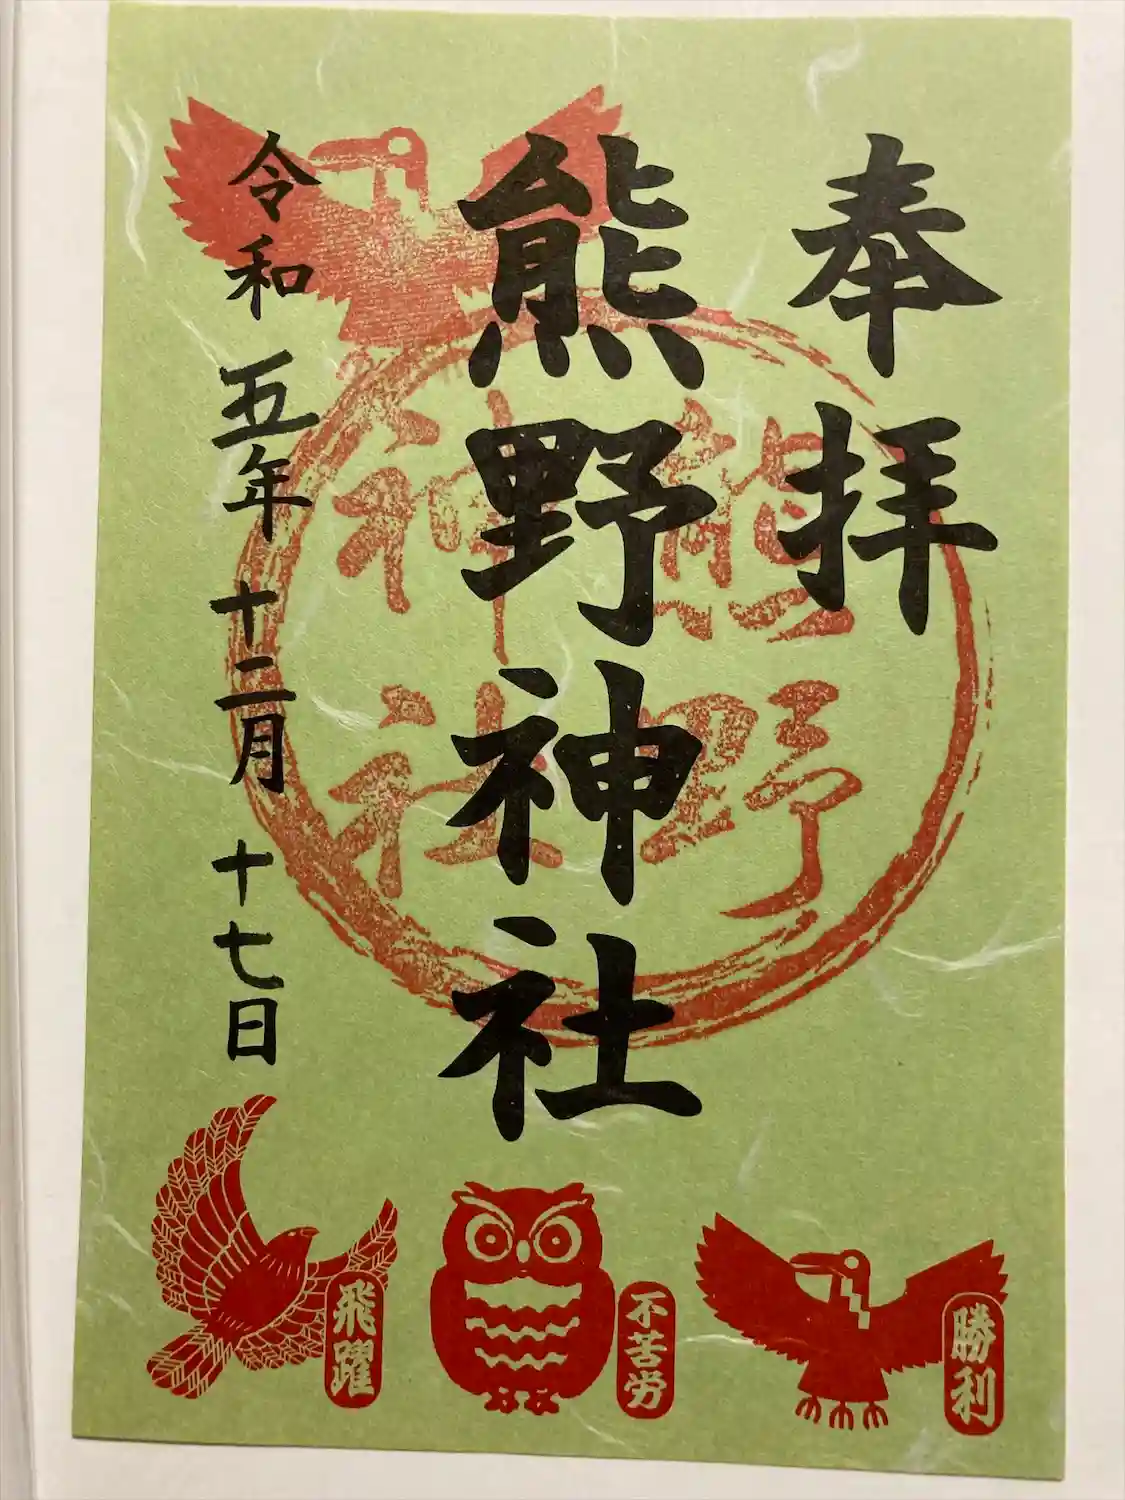 奉拝
熊野神社
熊野
神社
令和五年十二月十七日
勝利
不苦労
飛躍